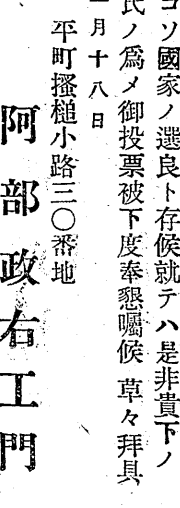 コソ國家ノ選良ト存候就テハ是非貴下ノ
氏ノ爲メ御投票被下度奉懇囑候 草々拜具
一月十八日
平町搔槌小路三〇番地
阿部政右工門